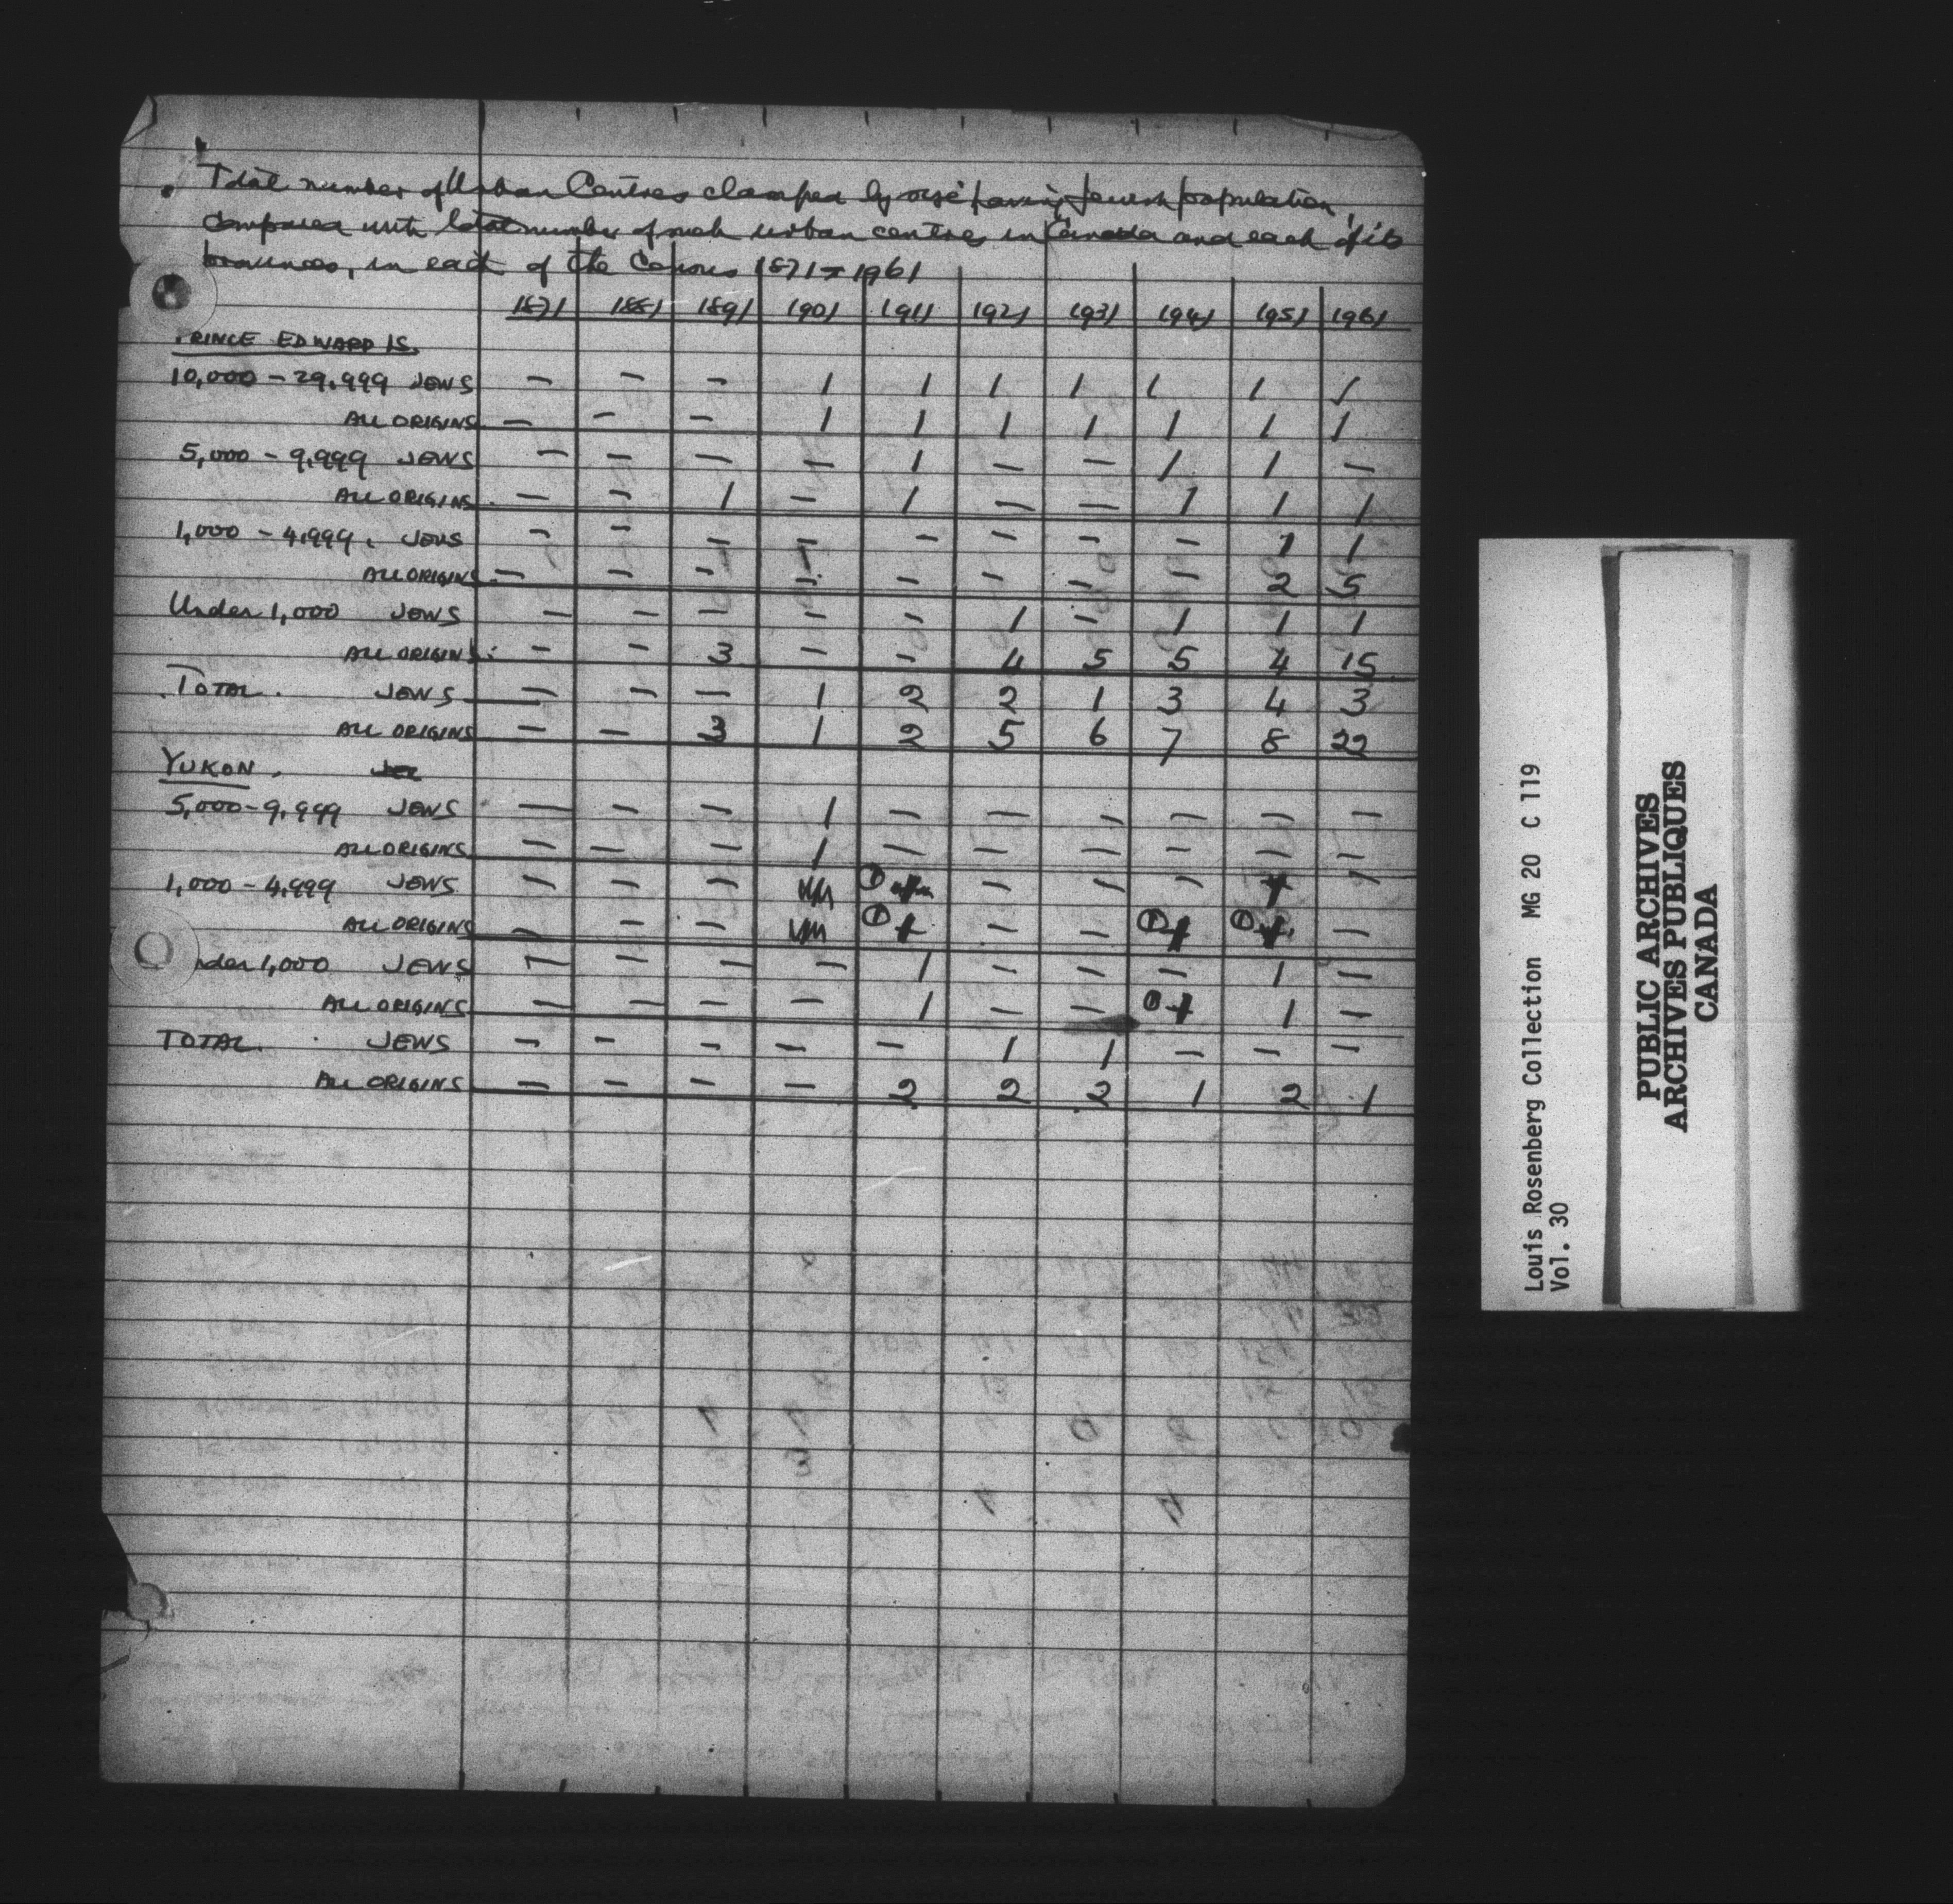 Total number of Urban Centres classified by size having Jewish population,
compared with total number of such urban centres in Canada and each of its
provinces, in each of the Census 1871 - 1961
1871 1881 1891 1901 1911 1921 1931 1941 1951 1961
PRINCE EDWARD IS.
10,000 - 29,999 JEWS — — — 1 1 1 1 1 1 1
ALL ORIGINS — — — 1 1 1 1 1 1 1
5,000 - 9,999 JEWS — — — — 1 — — 1 1 —
ALL ORIGINS — — 1 — 1 — — 1 1 1
1,000 - 4,999. JEWS — — — — — — — — 1 1
ALL ORIGINS — — — — — — — — 2 5
Under 1,000 JEWS — — — — — 1 — 1 1 1
ALL ORIGINS — — 3 — — 4 5 5 4 15
TOTAL. JEWS — — — 1 2 2 1 3 4 3
ALL ORIGINS — — 3 1 2 5 6 7 8 22
YUKON.
5,000 - 9,999 JEWS — — — 1 — — — — — —
ALL ORIGINS — — — 1 — — — — — —
1,000 - 4,999 JEWS — — — ① — — — —
ALL ORIGINS — — — ① — — ① ① —
nder 1,000 JEWS — — — — 1 — — — 1 —
ALL ORIGINS — — — — 1 — — 1 —
TOTAL. JEWS — — — — — 1 1 — — —
ALL ORIGINS — — — — 2 2 2 1 2 1
Louis Rosenberg Collection MG 20 C 119
Vol. 30
PUBLIC ARCHIVES
ARCHIVES PUBLIQUES
CANADA